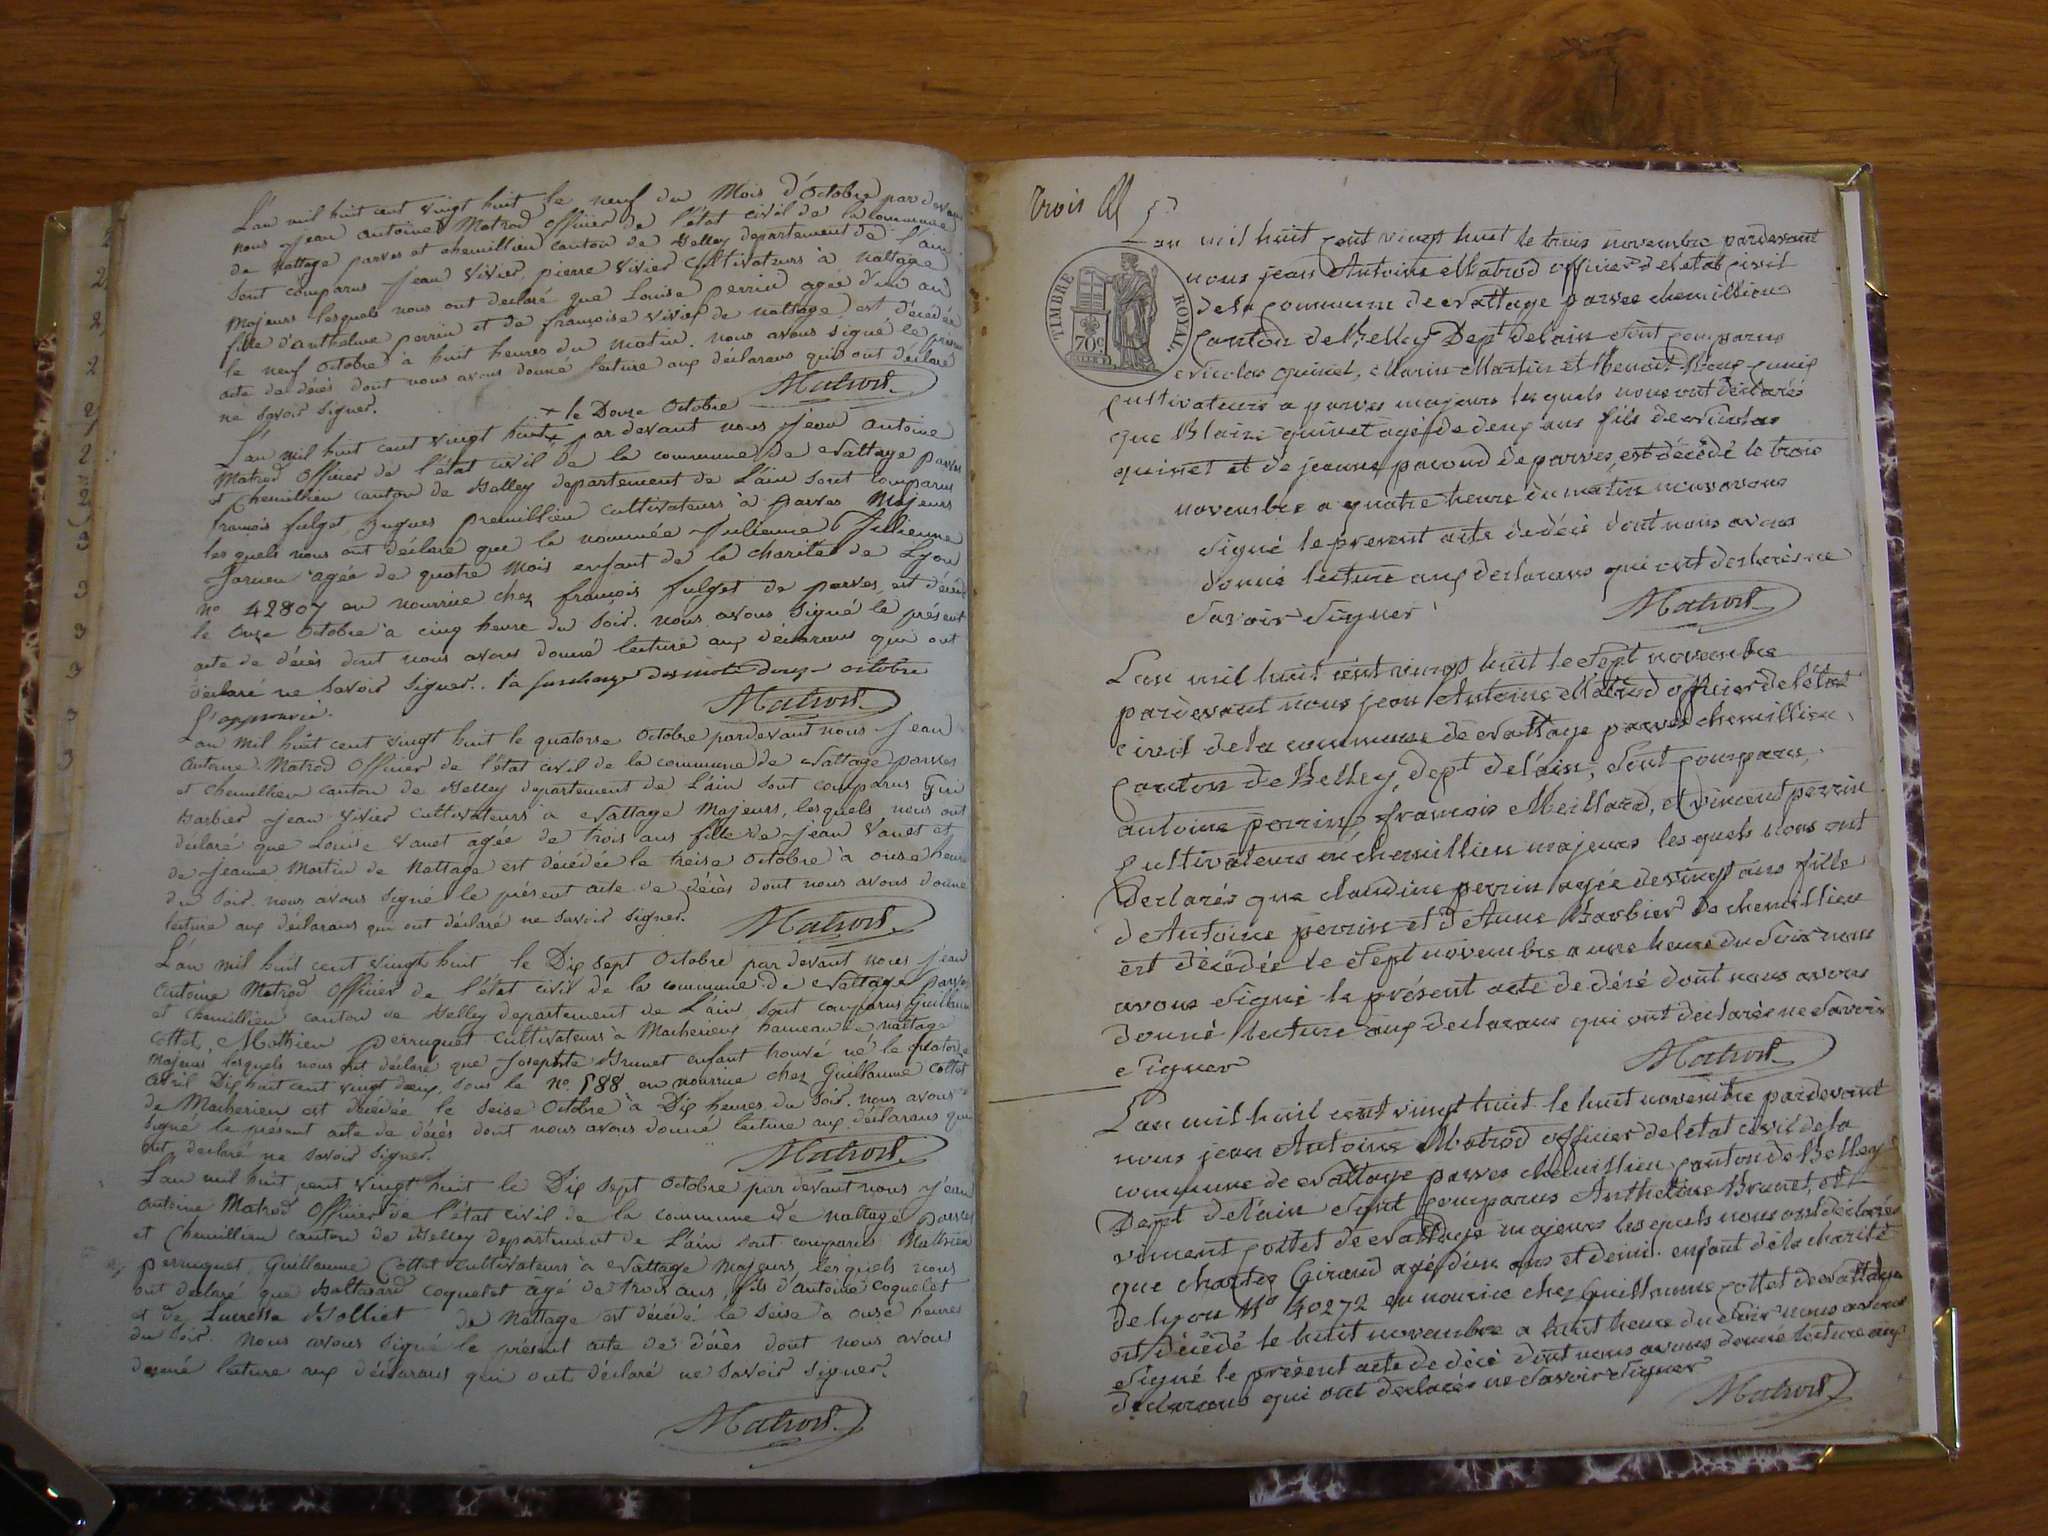 L'an mil huit cent vingt huit le neuf du Mois d'Octobre par devant
nous Jean Antoine Matrod Officier de l'état civil de la commune
de Nattage parves et chemillieu canton de Belley departement de l'ain
sont comparus Jean Vivier, pierre Vivier Cultivateurs à Nattage
Majeurs lesquels nous ont declaré que Louise Perrin agée d'un an
fille d'anthelme perrin et de françoise Vivier de nattage, est décédée
le neuf Octobre à huit heures du matin. nous avons signé le présent
acte de décès dont nous avons donné lecture aux déclarans qui ont déclaré
ne savoir signer. Matrod
+ le Douze Octobre
L'an mil huit cent vingt huit + par devant nous Jean Antoine
Matrod Officier de l'état civil de la commune de Nattage parves
et Chemillieu canton de Belley departement de L'ain sont comparus
françois fulget, hugues premillieu cultivateurs à parves Majeurs
les quels nous ont déclaré que la nommée Julienne Jullienne
agée de quatre mois enfant de la charité de Lyon
n° 42807 en nourrice chez françois fulget de parves, est décédée
le onze Octobre à cinq heure du soir. nous avons signé le présent
acte de décès dont nous avons donné lecture aux déclarans qui ont
déclaré ne savoir signer.. la surcharge des mots douze octobre
l'approuvée. Matrod
L'an mil huit cent vingt huit le quatorse Octobre pardevant nous Jean
Antoine Matrod Officier de l'état civil de la commune de Nattage parves
et Chemillieu canton de Belley departement de L'ain sont comparus
Barbier Jean Vivier Cultivateurs à Nattage Majeurs, lesquels nous ont
déclaré que Louise Vanet agée de trois ans fille de Jean Vanet et
de Jeanne Martin de Nattage est décédée le treise Octobre à onse heure
du soir. nous avons signé le présent acte de décès dont nous avons donné
lecture aux déclarans qui ont déclaré ne savoir signer. Matrod
L'an mil huit cent vingt huit le Dix sept Octobre par devant nous Jean
Antoine Matrod Officier de l'état civil de la commune de Nattage parves
et Chemillieu canton de Belley departement de L'ain sont comparus Guillaume
Cottet, Mathieu perruquet Cultivateurs à Macherieu hameau de nattage
Majeurs lesquels nous ont déclaré que Josephte Brunet enfant trouvé né le quatorze
avril Dix huit cent vingt deux, sous le N° 588 en nourrice chez Guillaume Cottet
de Macherieu est décédée le seise Octobre à Dix heures du soir. nous avons
signé le présent acte de décès dont nous avons donné lecture aux déclarans qui
ont déclaré ne savoir signer. Matrod
L'an mil huit cent vingt huit le Dix sept Octobre par devant nous Jean
Antoine Matrod Officier de l'état civil de la commune de nattage parves
et Chemillieu canton de Belley departement de L'ain sont comparus Mathieu
perruquet, Guillaume Cottet cultivateurs à Nattage Majeurs, lesquels nous
ont déclaré que Baltasard Coquelet âgé de trois ans, fils d'antoine coquelet
et de Lucresse Bolliet de Nattage est décédé le seise à onse heures
du soir. nous avons signé le présent acte de décès dont nous avons
donné lecture aux déclarans qui ont déclaré ne savoir signer.
Matrod
trois
TIMBRE ROYAL.
70c
L'an mil huit cent vingt huit le trois novembre pardevant
nous jean Antoine Matrod officier de l'etat civil
de la commune de Nattage parves chemillieu
canton de Belley Dept de lain sont comparus
Nicolas quinet, Marin Martin et Benoit
cultivateurs a parves majeurs lesquels nous ont déclarés
que Blaise quinet agé de deux ans fils de Nicolas
quinet et de jeanne pacoud de parves, est décédé le trois
novembre a quatre heure du matin nous avons
signé le present acte de décè dont nous avons
donné lecture aux declarans qui ont declarés ne
savoir signer Matrod
L'an mil huit cent vingt huit le sept novembre
pardevant nous jean Antoine Matrod officier de l'état
civil de la commune de Nattage parves chemillieu
canton de Belley, dept de l'ain, sont comparu,
antoine perrin, françois Meillard, et vincent perrin
cultivateurs à chemillieu majeurs les quels nous ont
declarés que claudine perrin agée de vingt ans fille
d'Antoine perrin et d'Anne Barbier de chemillieu
est décédée le sept novembre a une heure du soir nous
avons signé le présent acte de décé dont nous avons
donné lecture aux declarans qui ont declarés ne savoir
signer Matrod
L'an mil huit cent vingt huit le huit novembre pardevant
nous jean Antoine Matrod officier de l'etat civil de la
commune de Nattage parves chemillieu canton de Belley
Dept de l'ain sont comparus Anthelme Brunet, et
vincent cottet de Nattage majeurs les quels nous ont declarés
que charles Giraud agé d'un ans et demi. enfant de la charité
de lyon N° 40272 en nourice chez Guillaume cottet de Nattage
est décédé le huit novembre a huit heure du soir nous avons
signé le présent acte de décè dont nous avons donné lecture aux
declarans qui ont declarés ne savoir signer
Matrod